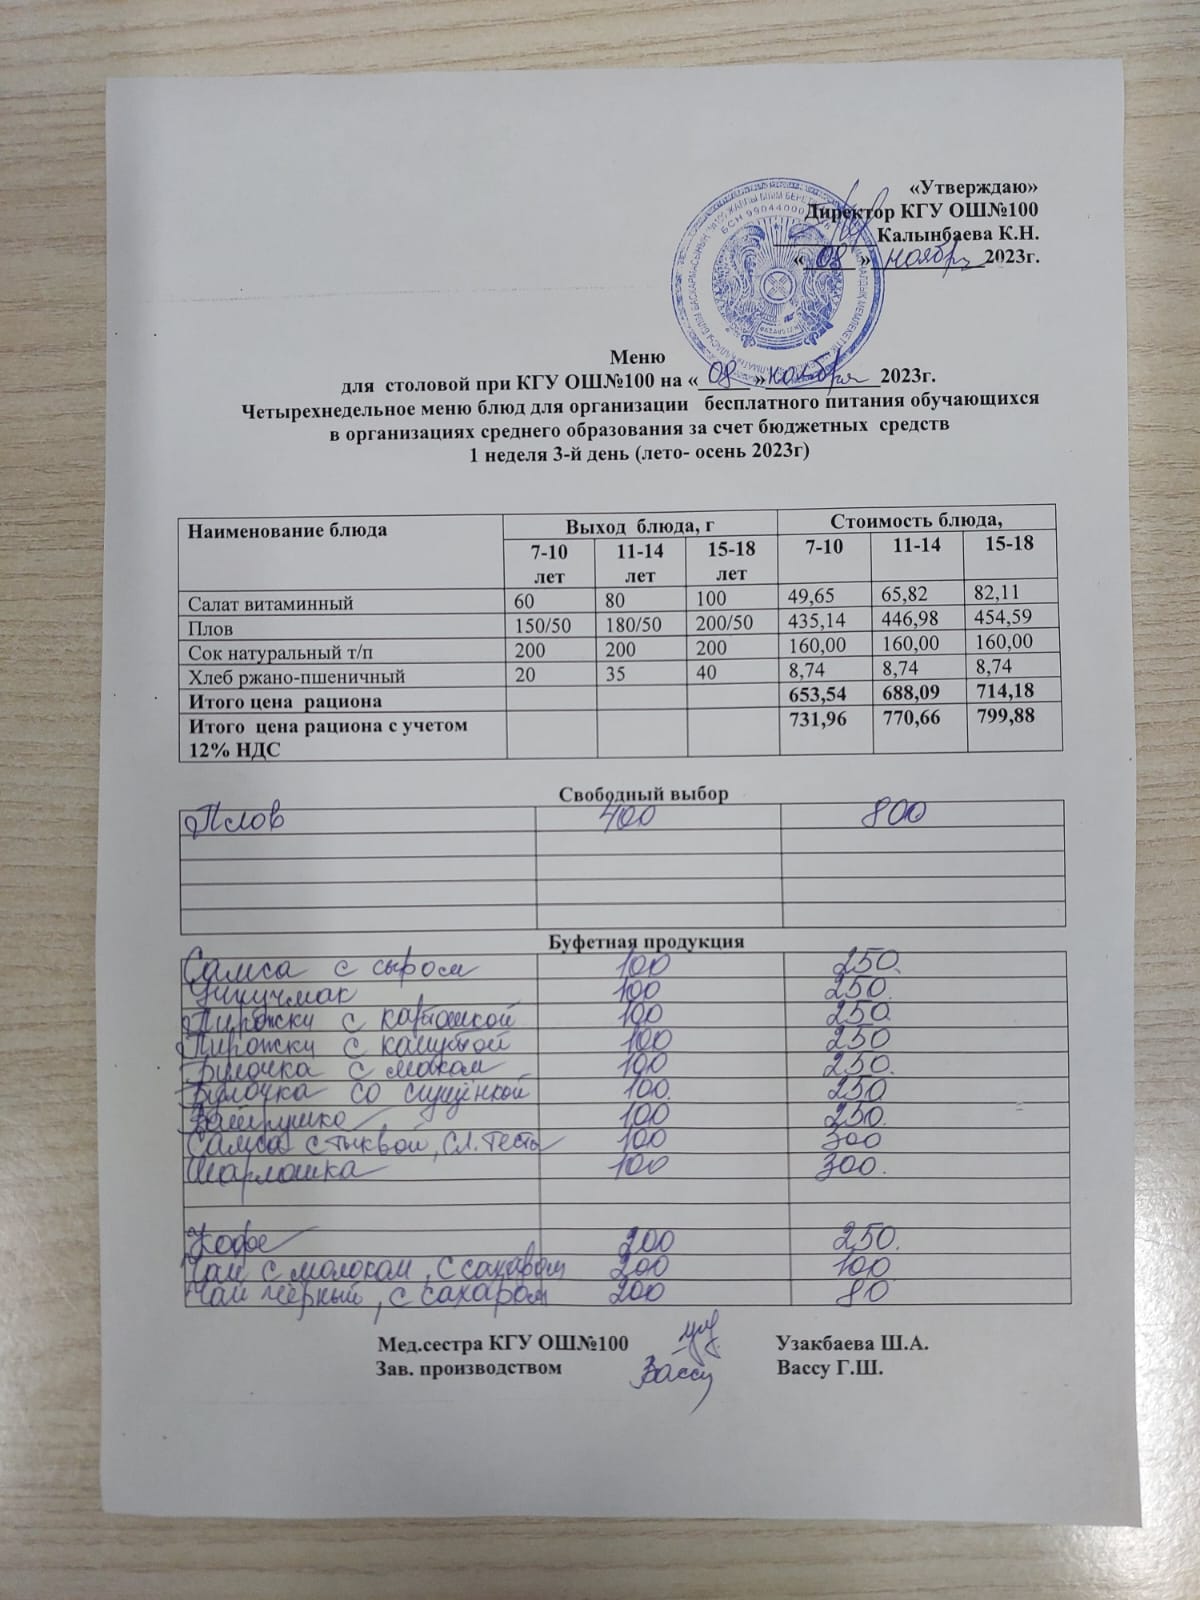 «Утверждаю»
Директор КГУ ОШ№100
__________Калынбаева К.Н.
«_08_»_ноября_2023г.
Меню
для столовой при КГУ ОШ№100 на «_08_»_ноября_2023г.
Четырехнедельное меню блюд для организации бесплатного питания обучающихся
в организациях среднего образования за счет бюджетных средств
1 неделя 3-й день (лето- осень 2023г)
Наименование блюда Выход блюда, г Стоимость блюда,
7-10 лет 11-14 лет 15-18 лет 7-10 11-14 15-18
Салат витаминный 60 80 100 49,65 65,82 82,11
Плов 150/50 180/50 200/50 435,14 446,98 454,59
Сок натуральный т/п 200 200 200 160,00 160,00 160,00
Хлеб ржано-пшеничный 20 35 40 8,74 8,74 8,74
Итого цена рациона 653,54 688,09 714,18
Итого цена рациона с учетом 731,96 770,66 799,88
12% НДС
Свободный выбор
Плов 400 800
Буфетная продукция
Самса с сыром 100 250.
100 250.
Пирожки с картошкой 100 250
Пирожки с капустой 100 250
Булочка с маком 100 250.
Булочка со сгущёнкой 100. 250
100 250.
Самса с тыквой, сл. тесто 100 300
100 300.
Кофе 200 250.
Чай с молоком, с сахаром 200 100
Чай чёрный, с сахаром 200 80
Мед.сестра КГУ ОШ№100 Узакбаева Ш.А.
Зав. производством Вассу Вассу Г.Ш.